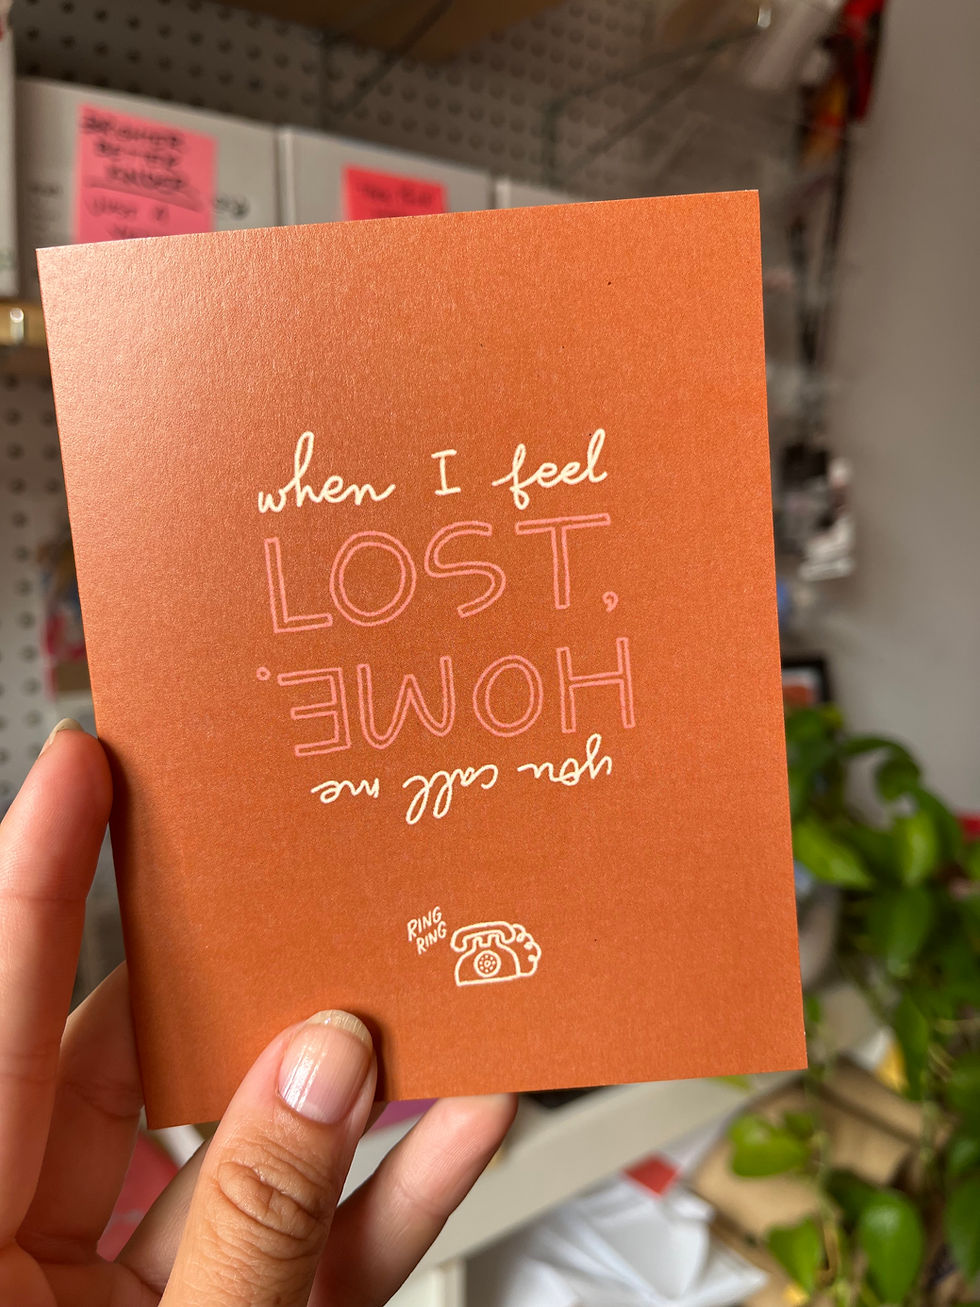 when I feel
LOST,
you call me
HOME.
RING
RING